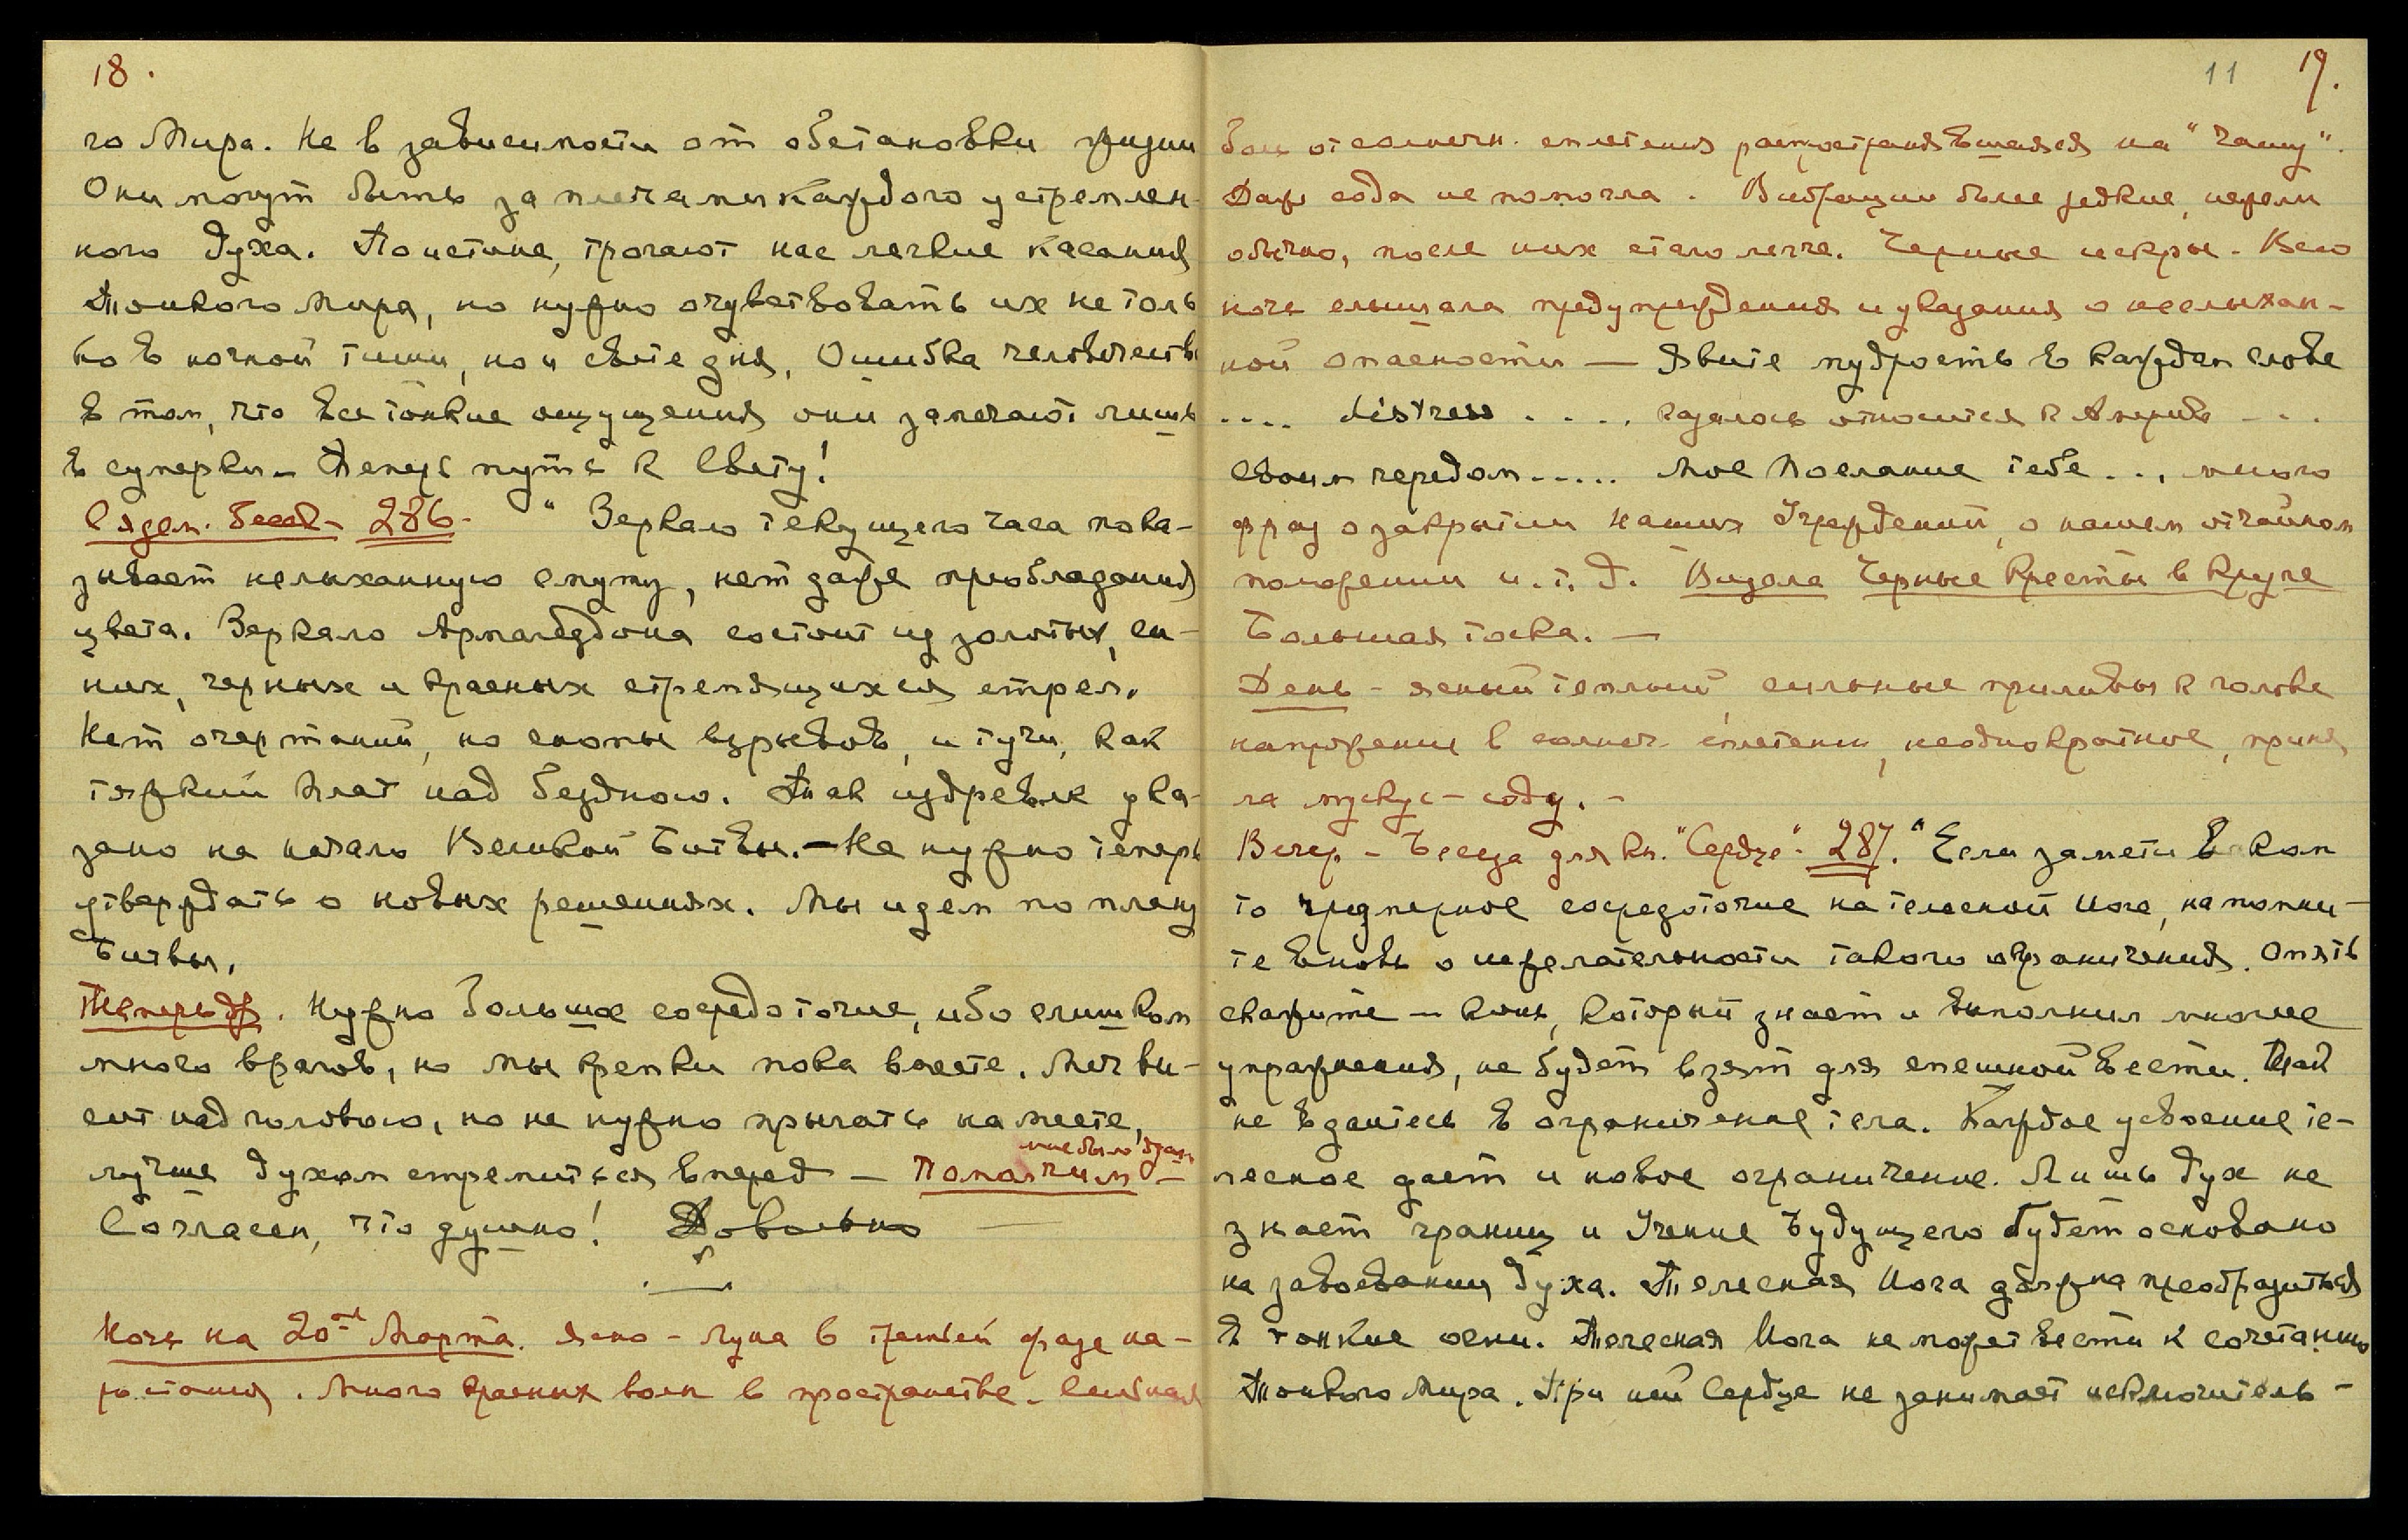 18.
го Мира. Не в зависимости от обстановки жизни
Они могут быть за плечами каждого устремлен-
ного духа. Поистине, трогают нас легкие касания
Тонкого Мира, но нужно отчувствовать их не толь
ко в ночной тиши, но и свете дня, Ошибка человечества
в том, что все тонкие ощущения они замечают лишь
в сумерки. Теперь путь к Свету!
След. бесед. 286. " Зеркало текущего часа пока-
зывает неслыханную смуту, нет даже преобладания
цвета. Зеркало Армагеддона состоит из золотых, си-
них, черных и красных стремящихся стрел.
Нет очертаний, но снопы взрывов, и тучи, как
тяжкий плат над бездною. Так издревле ука-
зано на начало Великой Битвы. — Не нужно теперь
утверждать о новых решениях. Мы идем по плану
Битвы.
Теперь др. Нужно больше сосредоточие, ибо слишком
много врагов, но мы крепки пока вместе. Меч ви-
сит над головою, но не нужно прыгать на месте,
мне было душн
лучше духом стремиться вперед — Помолчим —
Согласен, что душно! Довольно —
Ночь на 20-ое Марта. Ясно - Луна в третьей фазе на-
растания. Много красных волн в пространстве. Сильная
11 19.
боль от солнечн. сплетения распространявшаяся на "чашу".
Даже сода не помогла. Вибрации более редкие, нежели
обычно, после них стало легче. Черные искры. Всю
ночь слышала предупреждения и указания о неслыхан-
ной опасности — Явите мудрость в каждом слове
.... distress .... казалось относится к Америке ...
Своим чередом ..... Мое Послание тебе ... много
фраз о закрытии Наших Учреждений, о нашем отчаянном
положении и.т.д. Видела Черные Кресты в круге
Большая тоска. —
День - ясный теплый, сильные приливы к голове
напряжения в солнеч. сплетении, неоднократное, приня
ла мускус - соду. -
Вечер - Беседа для кн. "Сердце". 287. "Если заметите в ком
то чрезмерное сосредоточие на телесной Йоге, напомни-
те вновь о нежелательности такого ограничения. Опять
скажите — конь, который знает и выполнил многие
упражнения, не будет взят для спешной вести. Так
не вдайтесь в ограничение тела. Каждое усвоение те-
лесное дает и новое ограничение. Лишь дух не
знает границ и Учение Будущего будет основано
на завоевании духа. Телесная Йога должна преобразиться
в тонкие огни. Телесная Йога не может вести к сочетанию
Тонкого Мира. При ней Сердце не занимает исключитель-